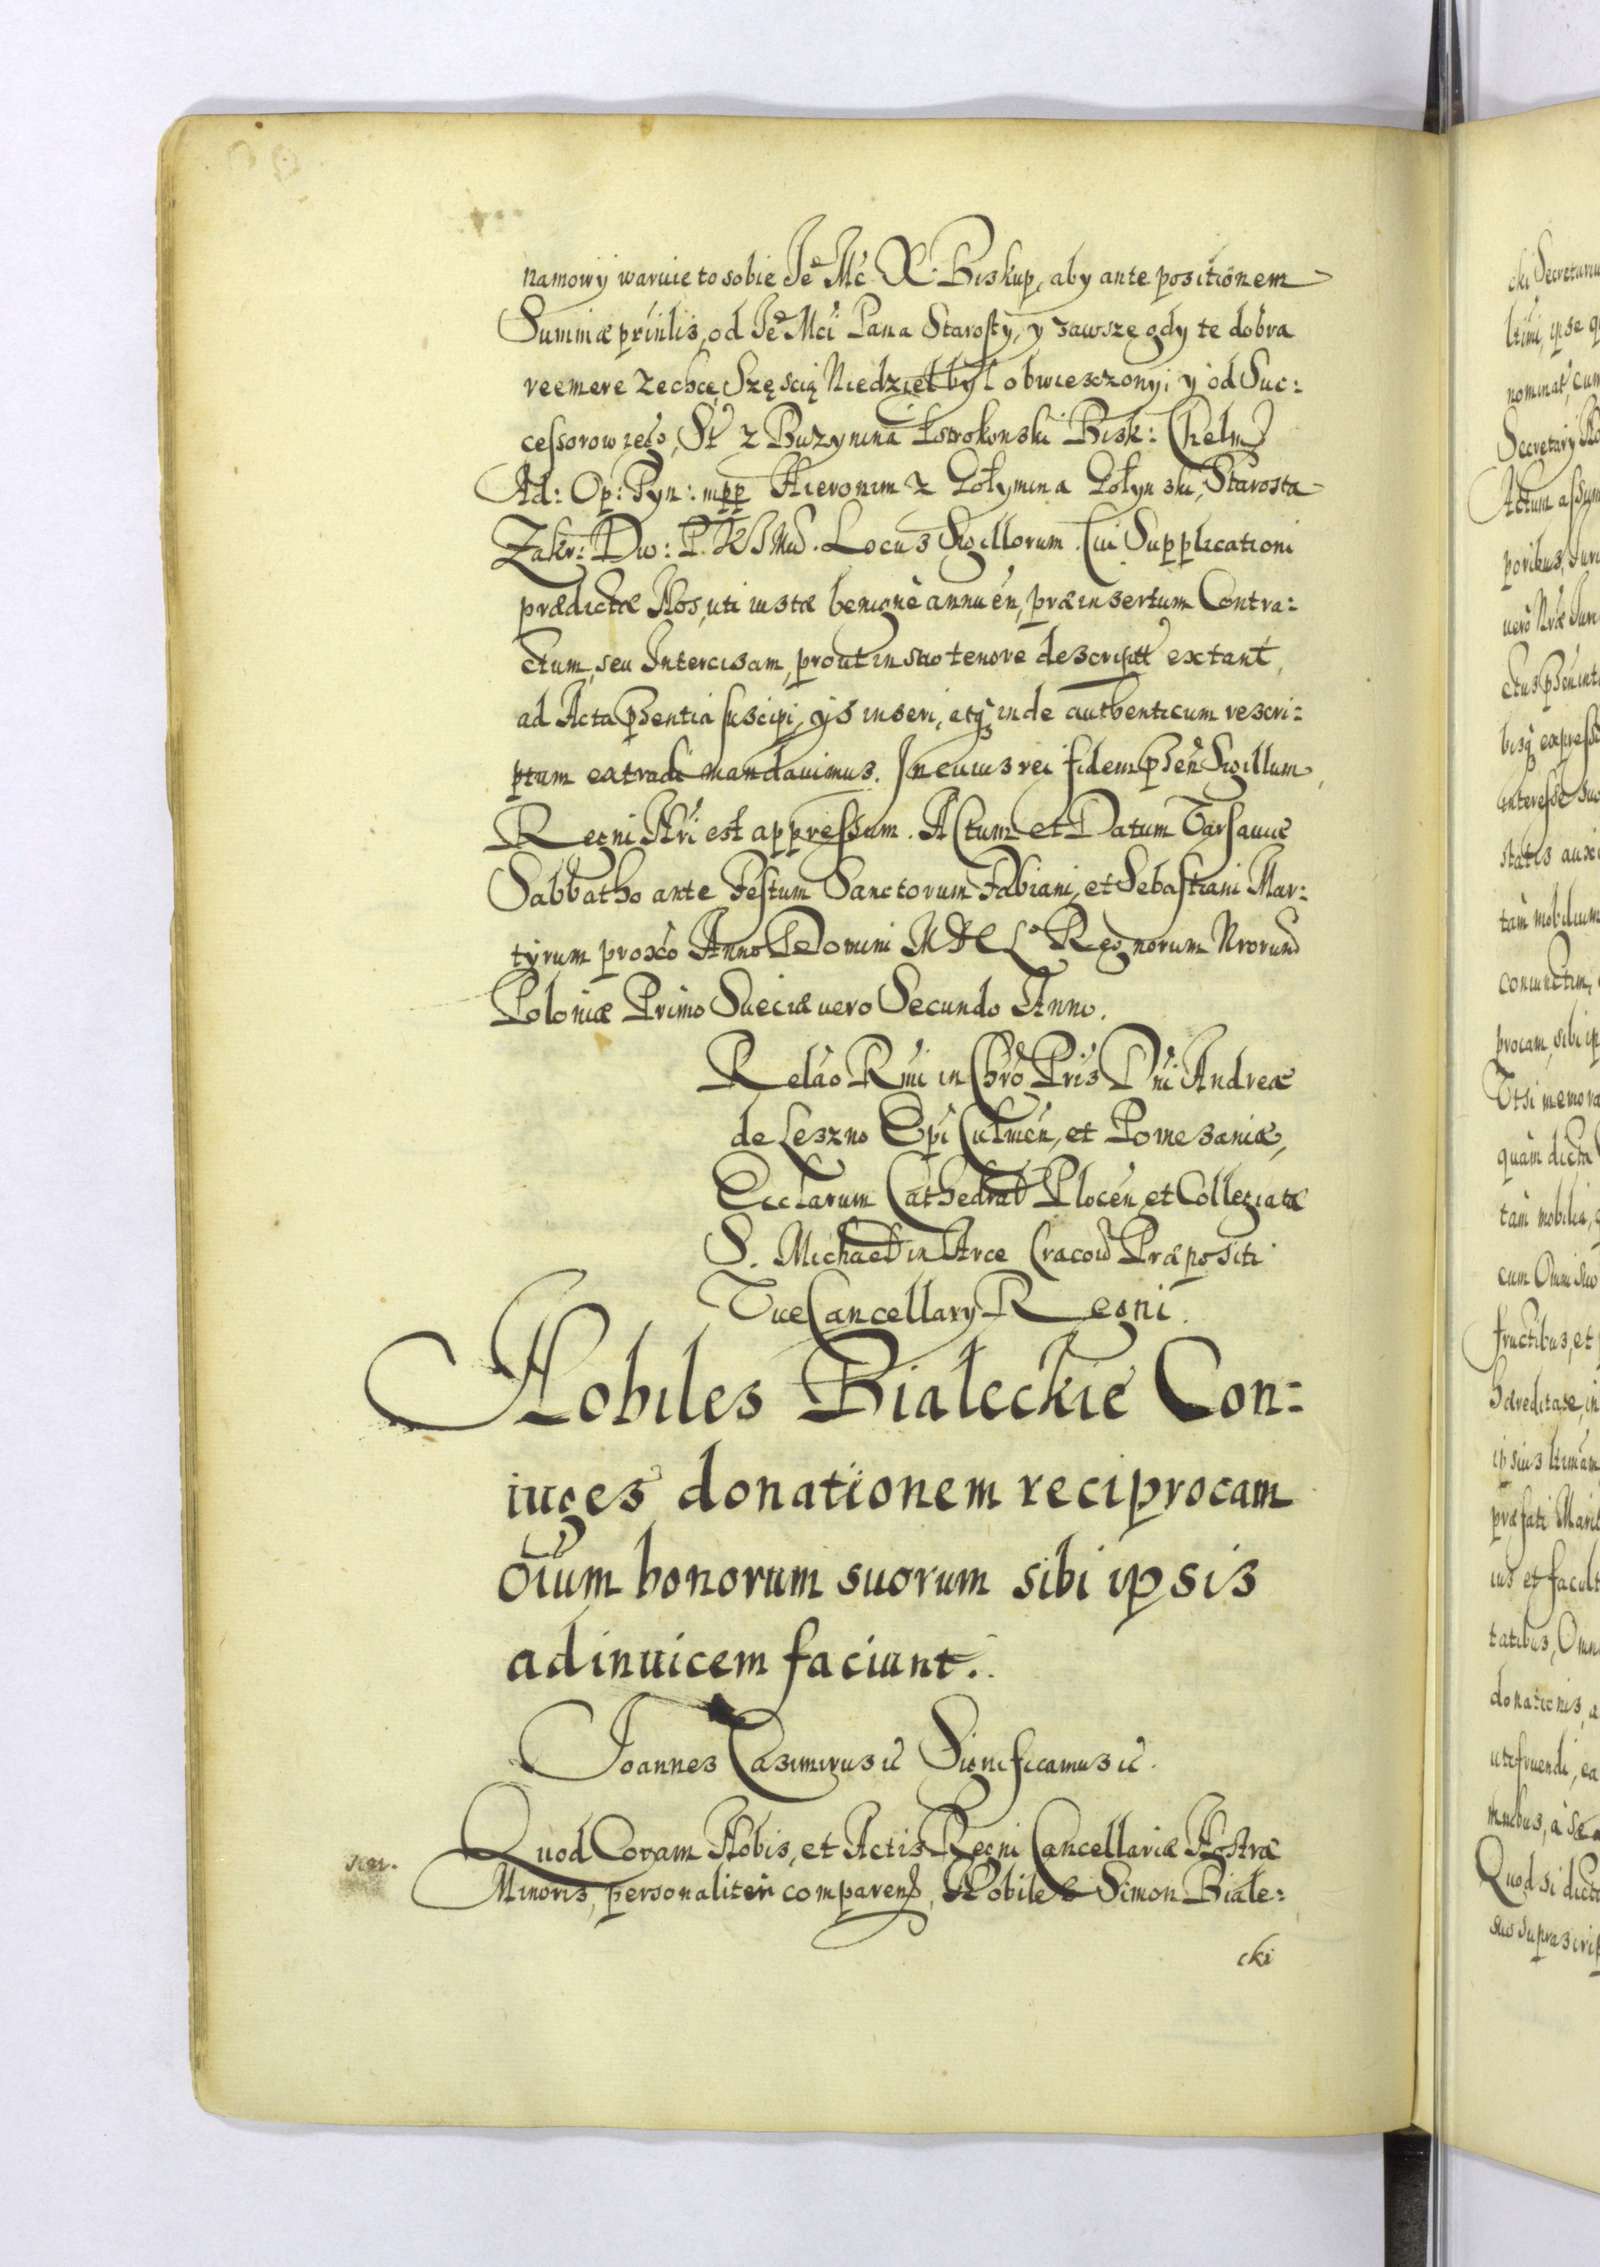 namowy waruie to sobie Je° Mć X. Biskup, aby ante positionem
Summæ prinlis, od Je° Mći Pana Starosty, y zawsze gdy te dobra
reemere zechce, Szęścią Niedziel był obwieszczony, y od Suc:
cessorow ie°, St z Buzynina Pstrokonski Bisk: Chelm
Ad: Op: Tyn: mpp Hieronim z Gołymina Gołynski, Starosta
Zakr: Dw: P. Locus Sigillorum. Cui Supplicationi
prædictæ Nos, uti iustæ benignè annuen, præinsertum Contra:
ctum, seu Intercisam, prout in suo tenore descript extant,
ad Acta pñsentia suscipi, ys inseri, atq inde authenticum rescri:
ptum extradi mandauimus. In cuius rei fidem pñsen Sigillum
Regni Nri est appressum. Actum et Datum Varsauiæ
Sabbatho ante Festum Sanctorum Fabiani, et Sebastiani Mar:
tyrum proxo Anno Domini MDCL° Regnorum Nrorum
Poloniæ Primo Sueciæ vero Secundo Anno.
Relao Rmi in Chro Pris Dni Andreæ
de Leszno Epi Culmen, et Pomesaniæ,
Ecclarum Cathedral Plocen, et Collegiatæ
S. Michael in Arce Cracow Præpositi
ViceCancellary Regni.
Nobiles Bialeckie Con:
iuges donationem reciprocam
oium bonorum suorum sibi ipsis
adinuicem faciunt.
Joannes Casimirus ic Significamus ic.
Quod Coram Nobis, et Actis Regni Cancellariæ Nostræ
Minoris, personaliter comparen, Nobiles Simon Biale:
cki
cki Secretariu
nominat, cum
Actum
poribus, Jure
interesse suo
tam mobilium
coniunctim,
procam, sibi ip
Etsi memora
quàm dicta
tàm mobilia,
cum Omni Iure
fructibus, et
hæreditate, in
præfati Marit
ius et facult
tatibus, Omn
donationis, a
utifruendi, ea
Quod si dict
suo suprascrip